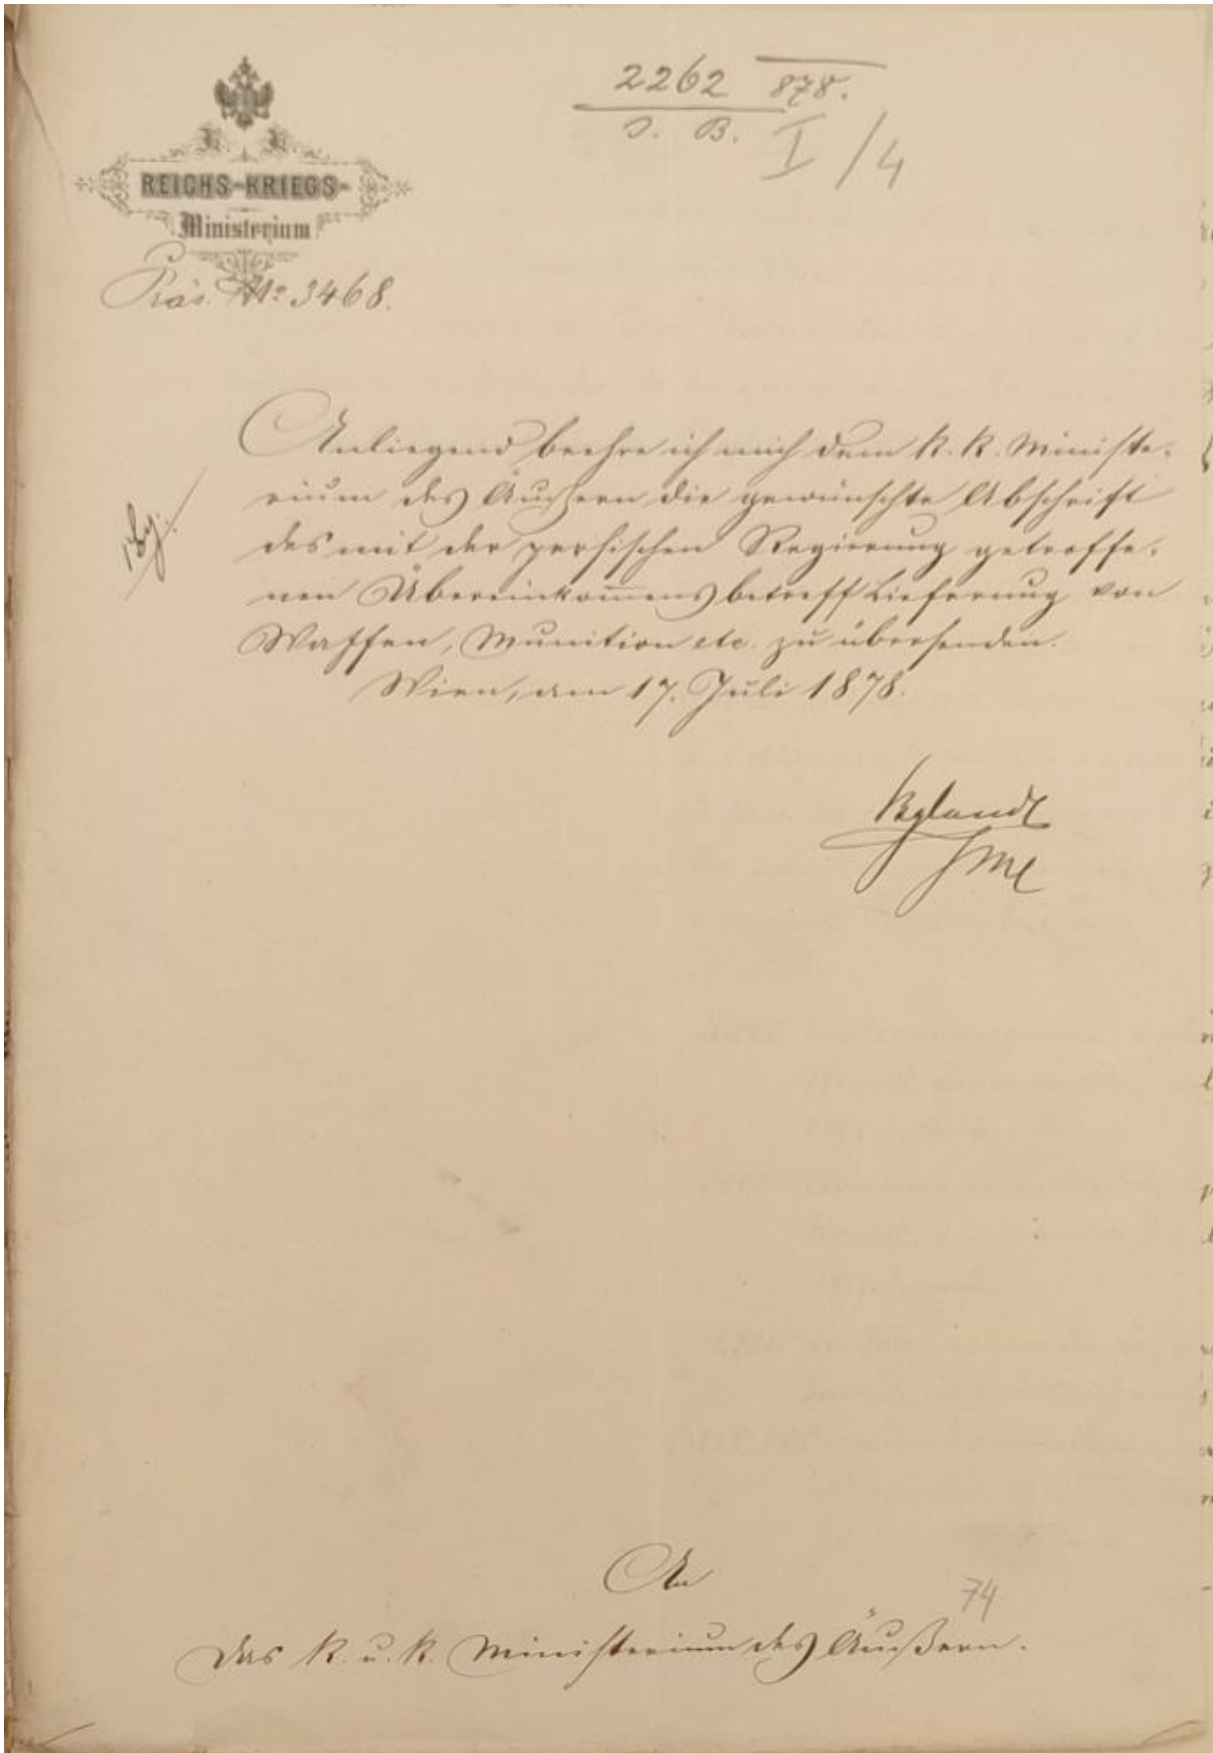 2262 878.
J. B. I/4
K. K.
REICHS-KRIEGS-
Ministerium
Präs. No 3468.
Anliegend beehre ich mich dem k. k. Ministe-
rium des Äußern die gewünschte Abschrift
des mit der persischen Regierung getroffe-
nen Übereinkom̅ens betreff Lieferung von
Waffen, Munition etc. zu übersenden.
Wien, am 17. Juli 1878.
Bylandt
FML
An
74
das k. u. k. Ministerium des Äußern.